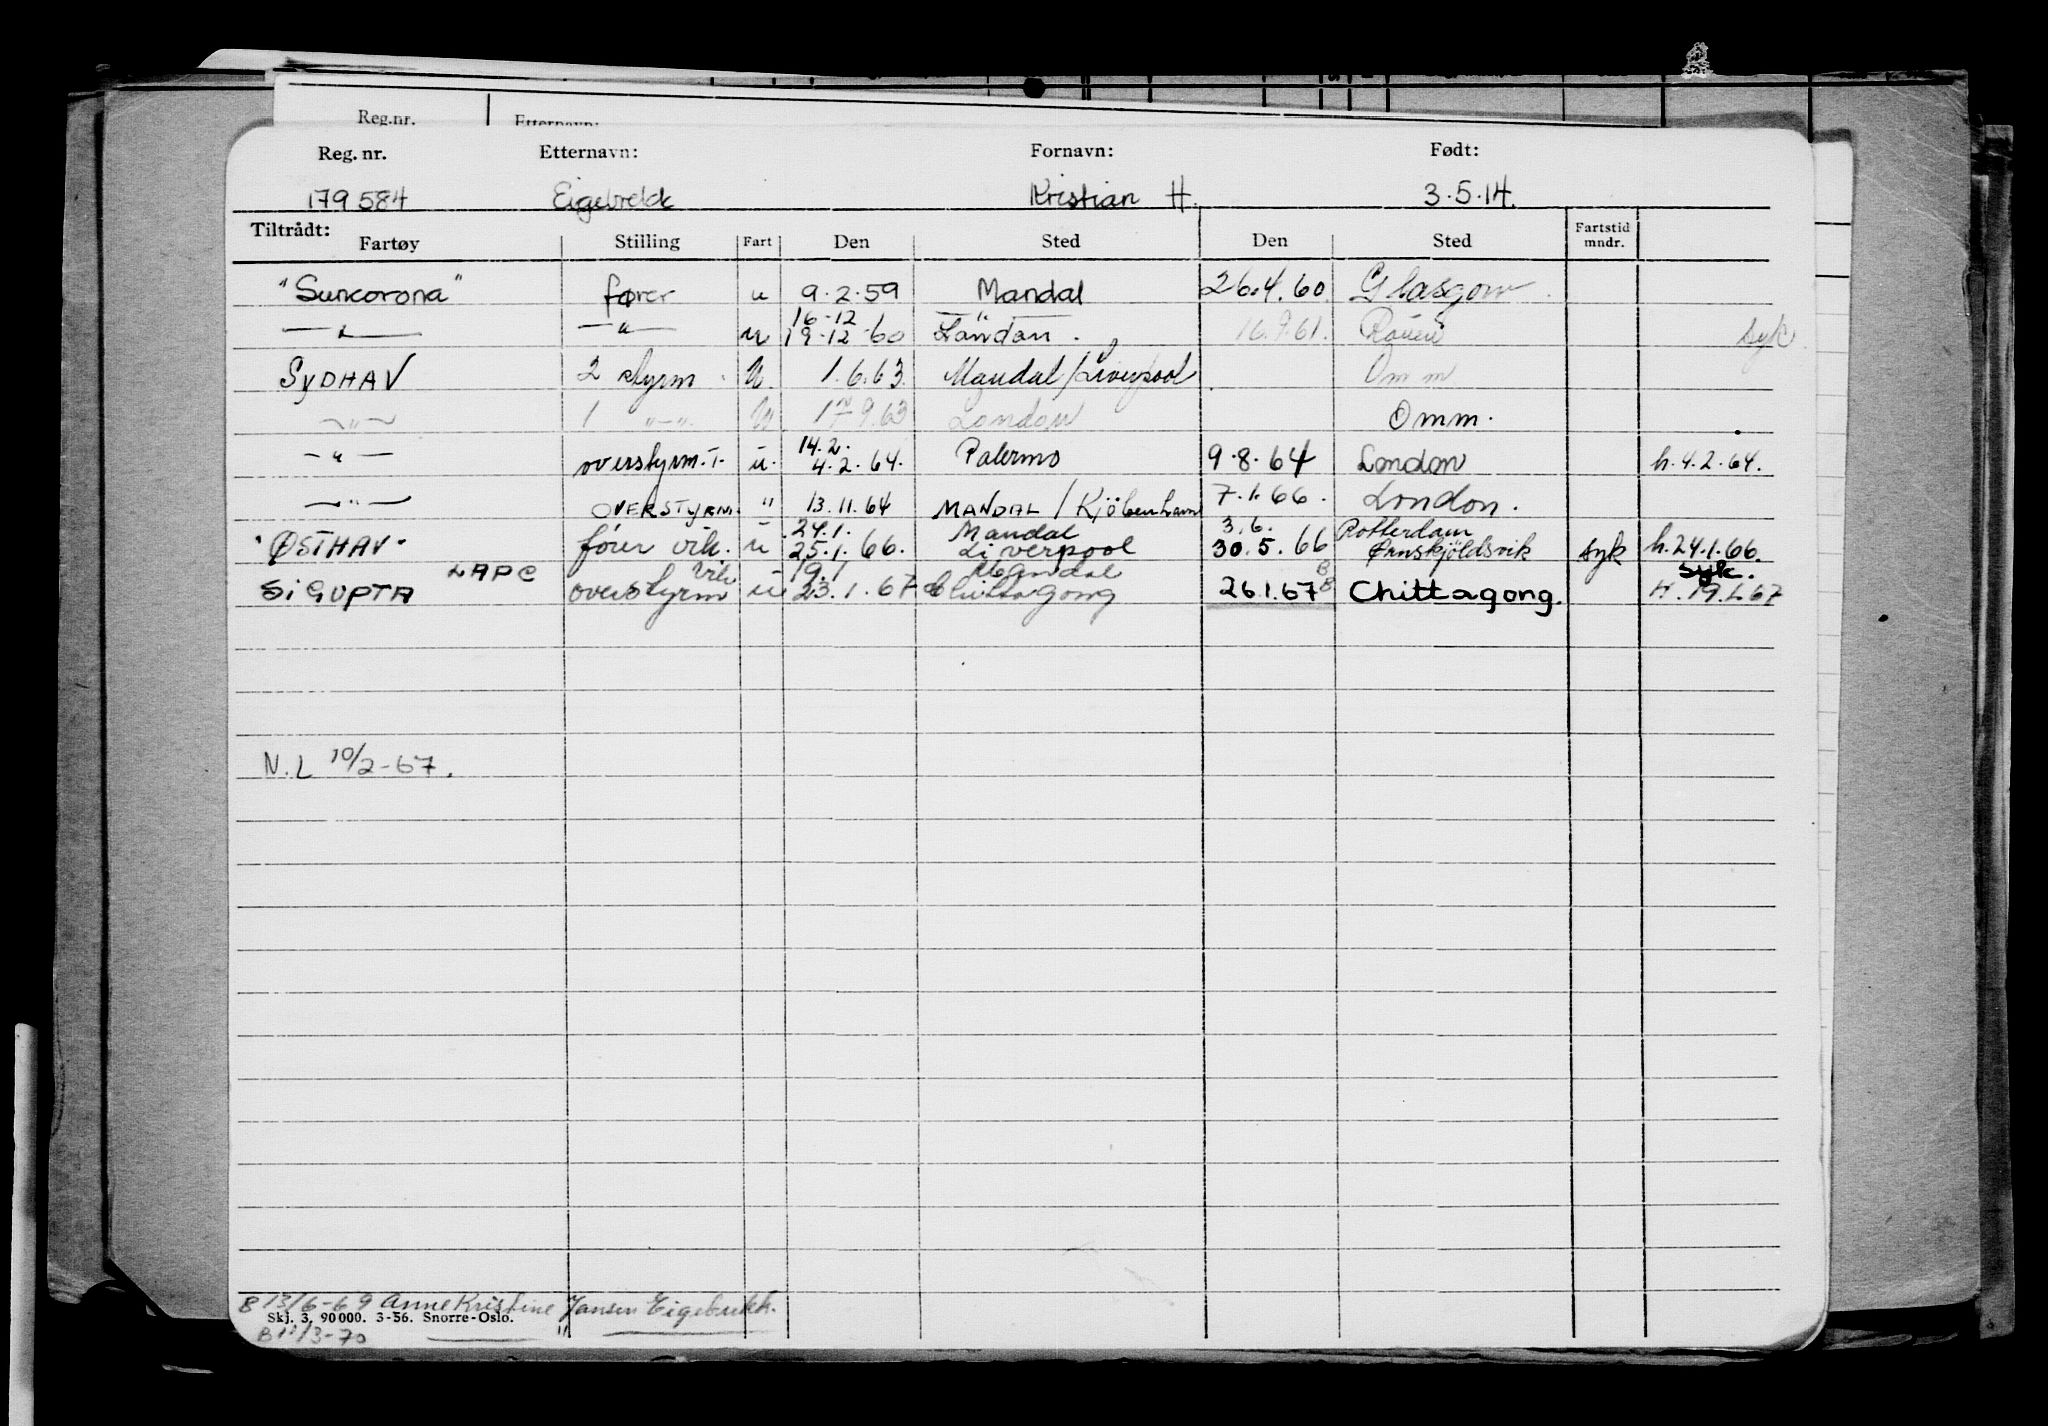 Reg.nr. Etternavn:
Reg. nr. Etternavn: Fornavn: Født:
179584 Eigebrekk Kristian H. 3.5.14.
Tiltrådt:
Fartøy Stilling Fart Den Sted Den Sted Fartstid mndr.
"Suncorona" fører u 9.2.59 Mandal 26.4.60. Glasgow
—"— —"— u 16-12 19-12-60 —"— London. 16.9.61. Rouen syk.
SYDHAV 2 styrm. u. 1.6.63. Mandal/Liverpool Omm
—"— 1 "—". u 17.9.63 London Omm.
—"— overstyrm.I. u. 14.2. 4.2.64. Palermo 9.8.64 London h.4.2.64.
—"— OVERSTYRM. " 13.11.64 MANDAL / Kjöbenhavn 7.1.66. London.
"ØSTHAV" fører vik. u 24.1. 25.1.66. Mandal Liverpool 3.6. 30.5.66 Rotterdam Ørnskjöldsvik syk h.24.1.66.
syk.
SIGUPTA LAPC overstyrm vik u 19.1 23.1.67 Mandal Chittagong 26.1.67 Chittagong. H.19.1.67
N.L 10/2-67.
B 13/6-69 Anne Kristine Jansen Eigebrekk.
Skj. 3. 90000. 3-56. Snorre-Oslo.
B 11/3-70 "